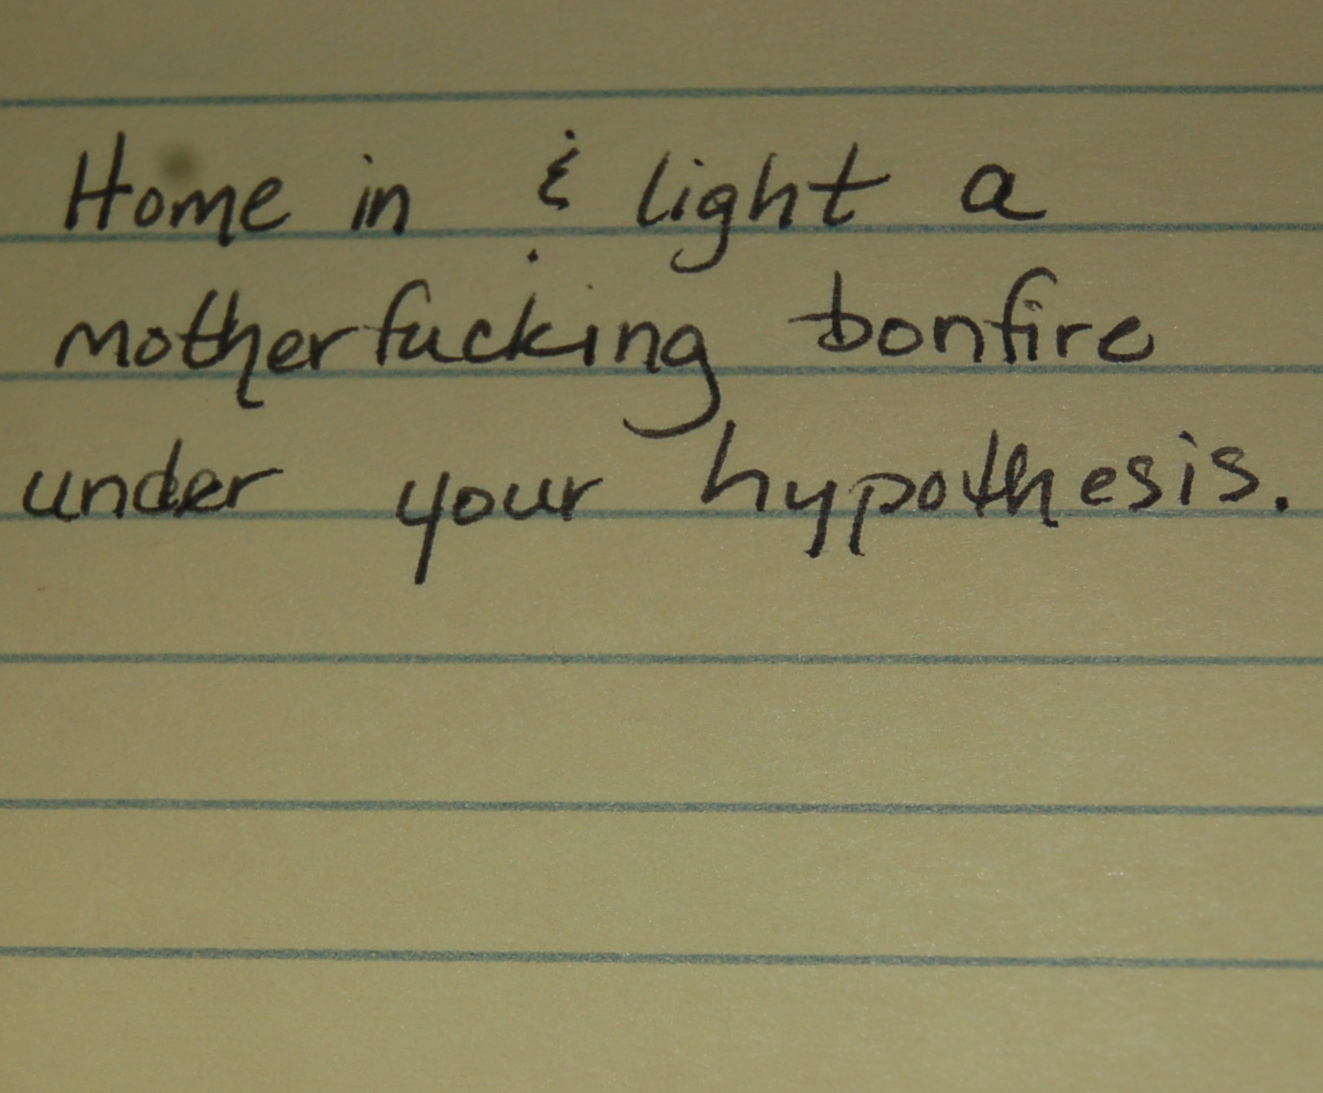 Home in & light a
motherfucking bonfire
under your hypothesis.